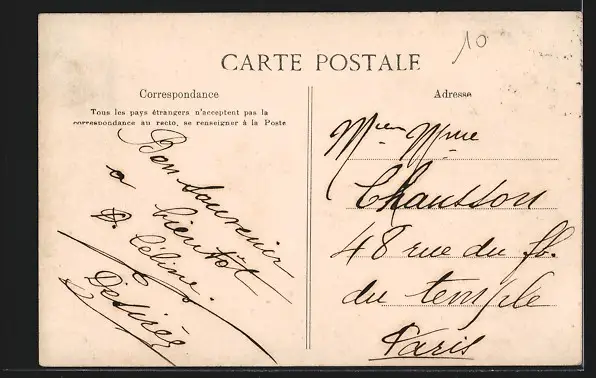 10
CARTE POSTALE
Correspondance
Tous les pays étrangers n'acceptent pas la
correspondance au recto, se renseigner à la Poste
Bon souvenir
a bientôt
Céline.
Désirée
Adresse
Mme
Chausson
48 rue du fb.
du temple
Paris